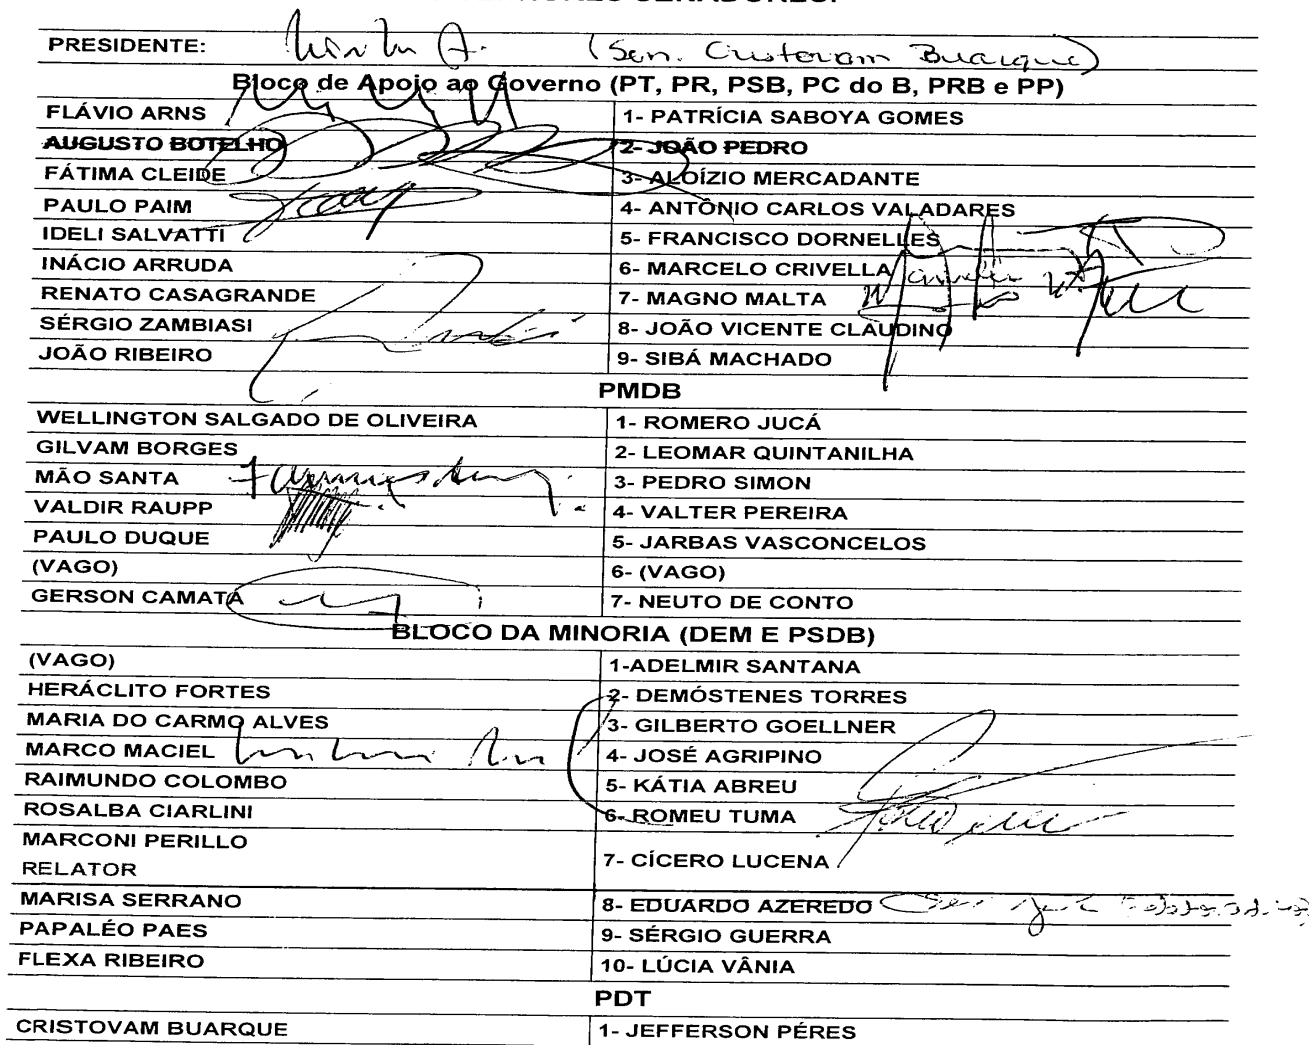 PRESIDENTE: (Sen. Cristovam Buarque)
Bloco de Apoio ao Governo (PT, PR, PSB, PC do B, PRB e PP)
FLÁVIO ARNS 1- PATRÍCIA SABOYA GOMES
AUGUSTO BOTELHO 2- JOÃO PEDRO
FÁTIMA CLEIDE 3- ALOÍZIO MERCADANTE
PAULO PAIM 4- ANTÔNIO CARLOS VALADARES
IDELI SALVATTI 5- FRANCISCO DORNELLES
INÁCIO ARRUDA 6- MARCELO CRIVELLA
RENATO CASAGRANDE 7- MAGNO MALTA
SÉRGIO ZAMBIASI 8- JOÃO VICENTE CLAUDINO
JOÃO RIBEIRO 9- SIBÁ MACHADO
PMDB
WELLINGTON SALGADO DE OLIVEIRA 1- ROMERO JUCÁ
GILVAM BORGES 2- LEOMAR QUINTANILHA
MÃO SANTA 3- PEDRO SIMON
VALDIR RAUPP 4- VALTER PEREIRA
PAULO DUQUE 5- JARBAS VASCONCELOS
(VAGO) 6- (VAGO)
GERSON CAMATA 7- NEUTO DE CONTO
BLOCO DA MINORIA (DEM E PSDB)
(VAGO) 1-ADELMIR SANTANA
HERÁCLITO FORTES 2- DEMÓSTENES TORRES
MARIA DO CARMO ALVES 3- GILBERTO GOELLNER
MARCO MACIEL 4- JOSÉ AGRIPINO
RAIMUNDO COLOMBO 5- KÁTIA ABREU
ROSALBA CIARLINI 6- ROMEU TUMA
MARCONI PERILLO
RELATOR 7- CÍCERO LUCENA
MARISA SERRANO 8- EDUARDO AZEREDO
PAPALÉO PAES 9- SÉRGIO GUERRA
FLEXA RIBEIRO 10- LÚCIA VÂNIA
PDT
CRISTOVAM BUARQUE 1- JEFFERSON PÉRES